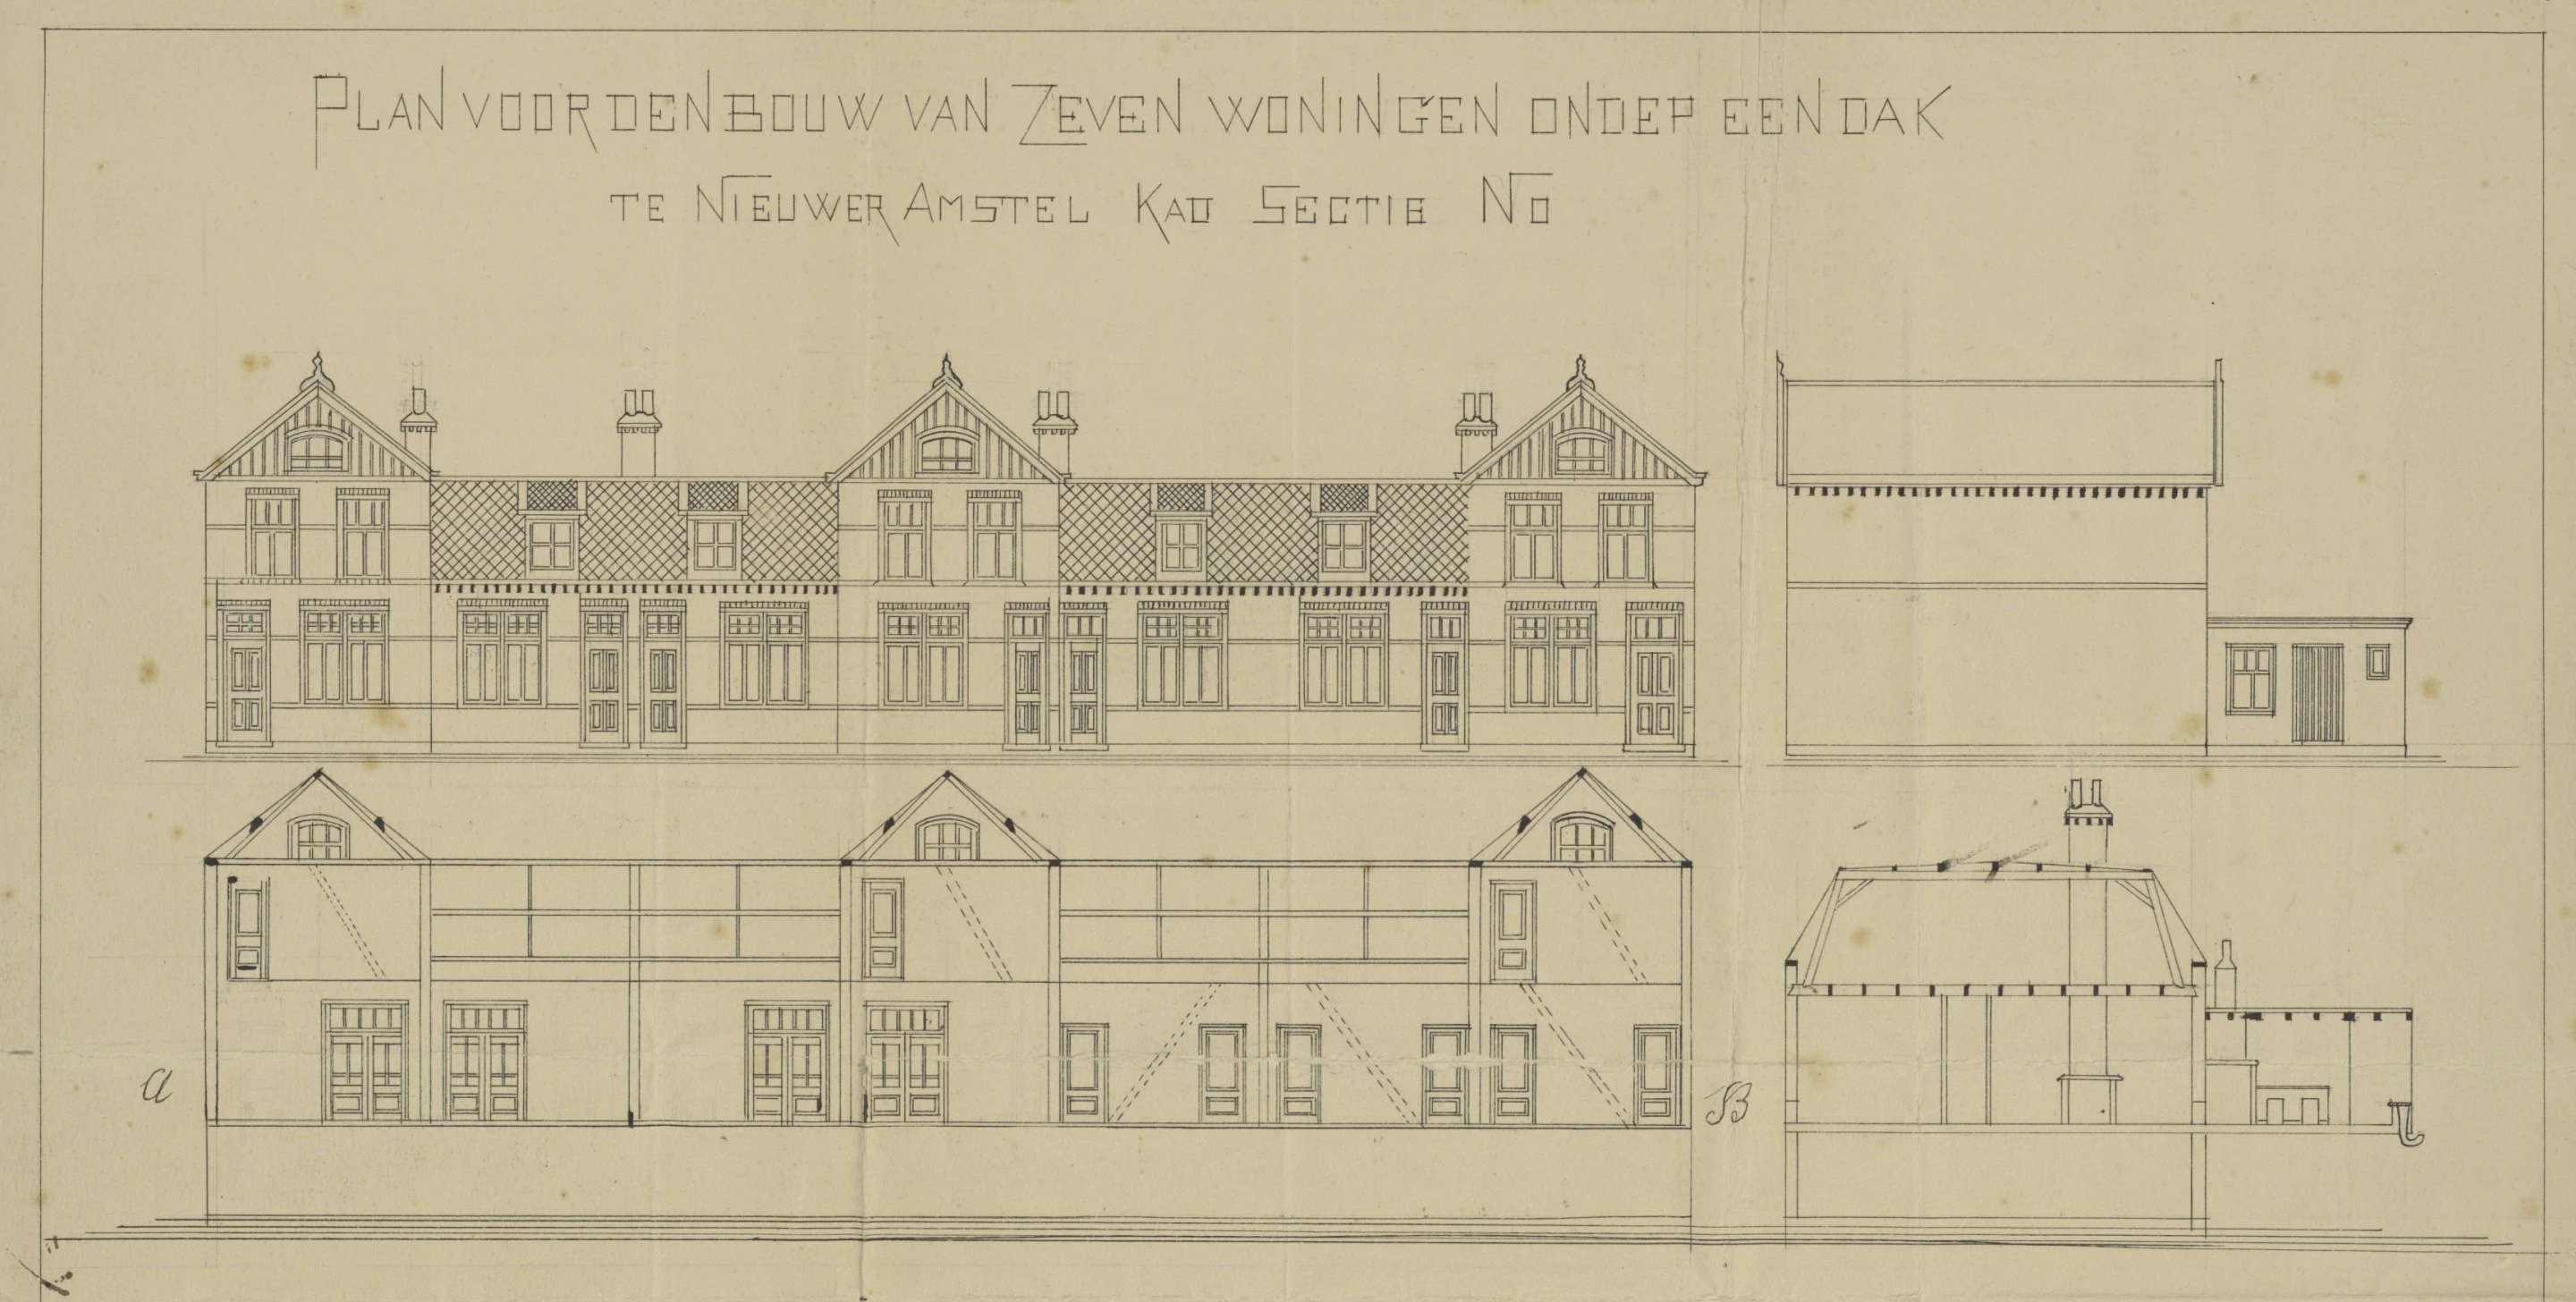 PLAN VOOR DEN BOUW VAN ZEVEN WONINGEN ONDER EEN DAK
TE NIEUWER AMSTEL KAD SECTIE NO
a
B